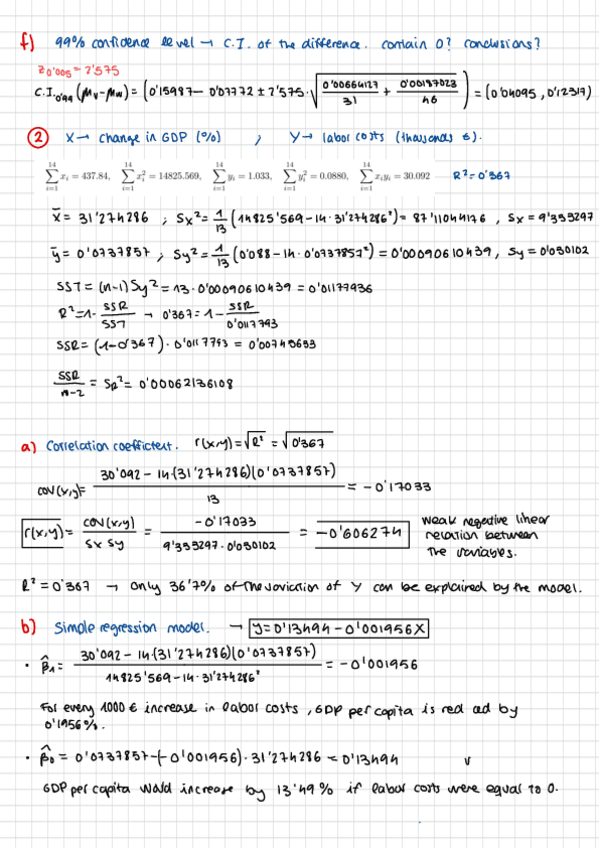 f) 99% confidence level → C.I. of the difference. contain 0? conclusions?
z0'005 = 2'575
C.I.0'99 (μv - μw) = (0'15987 - 0'07772 ± 2'575 · √(0'00664127/31 + 0'00187023/46)) = (0'04095, 0'12317)
② X → change in GDP (%) ; Y → labor costs (thousands €).
∑(i=1 to 14) xi = 437.84, ∑(i=1 to 14) xi² = 14825.569, ∑(i=1 to 14) yi = 1.033, ∑(i=1 to 14) yi² = 0.0880, ∑(i=1 to 14) xiyi = 30.092 R² = 0'367
x̄ = 31'274286 ; Sx² = 1/13 (14825'569 - 14 · 31'274286²) = 87'11044176 , Sx = 9'333297
ȳ = 0'0737857 ; Sy² = 1/13 (0'088 - 14 · 0'0737857²) = 0'00090610439 , Sy = 0'030102
SST = (n-1) Sy² = 13 · 0'00090610439 = 0'01177936
R² = 1 - SSR/SST → 0'367 = 1 - SSR/0'0117793
SSR = (1 - 0'367) · 0'0117793 = 0'00745633
SSR/n-2 = SR² = 0'00062136108
a) Correlation coefficient. r(x,y) = √R² = √0'367
cov(x,y) = 30'092 - 14 · (31'274286)(0'0737857) / 13 = -0'17033
r(x,y) = cov(x,y)/Sx Sy = -0'17033/9'333297 · 0'030102 = -0'606274 weak negative linear
relation between
the variables.
R² = 0'367 → Only 36'7% of the variation of Y can be explained by the model.
b) Simple regression model. → Y = 0'13494 - 0'001956X
• β̂1 = 30'092 - 14 · (31'274286)(0'0737857) / 14825'569 - 14 · 31'274286² = -0'001956
For every 1000 € increase in labor costs, GDP per capita is red ed by
0'1956%.
• β̂0 = 0'0737857 - (-0'001956) · 31'274286 = 0'13494
GDP per capita would increase by 13'49% if labor costs were equal to 0.